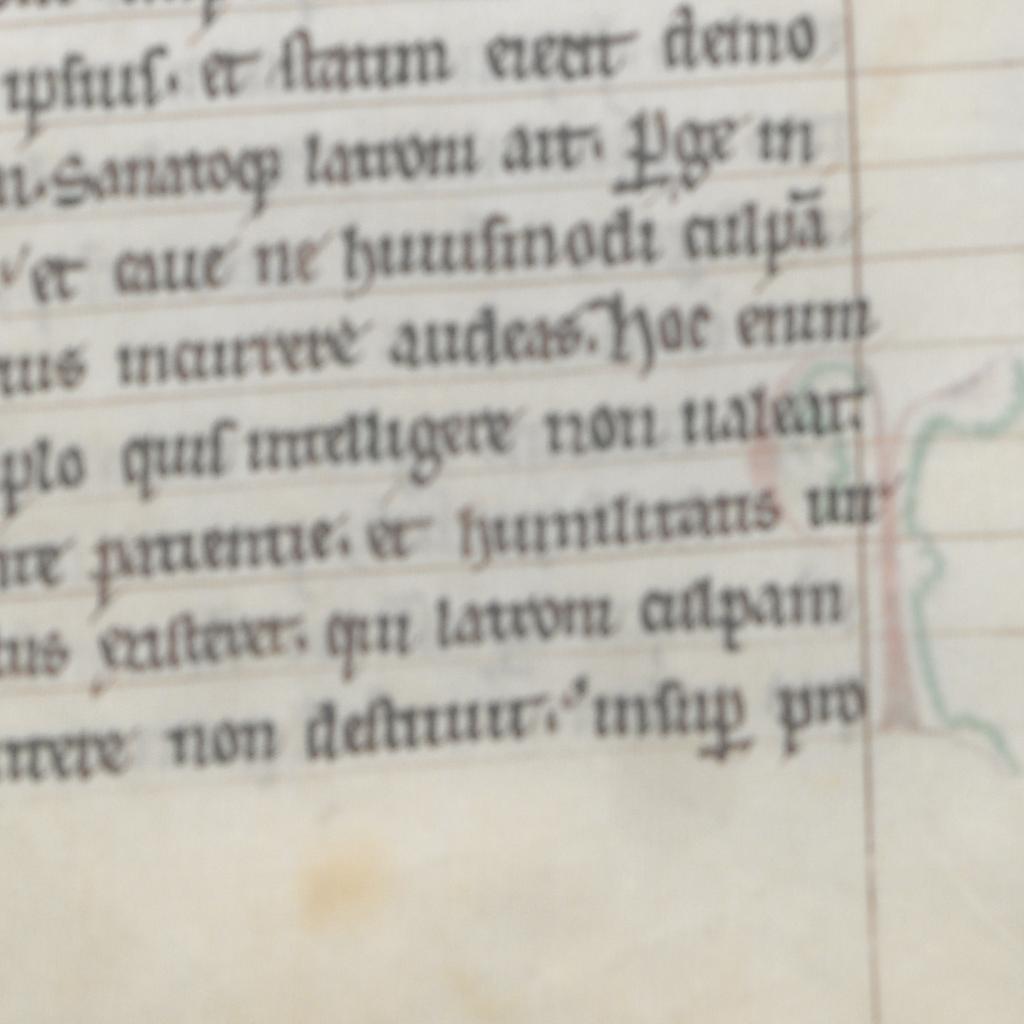 ipsius. et statim eiecit demo
Sanatoqꝫ latroni ait. Ꝑge in
et caue ne huiusmodi culpā
incurrere audeas. Hoc enim
quis intelligere non ualeat.
patientie. et humilitatis uir
extiterit. qui latroni culpam
non destituit. insuꝑ pro